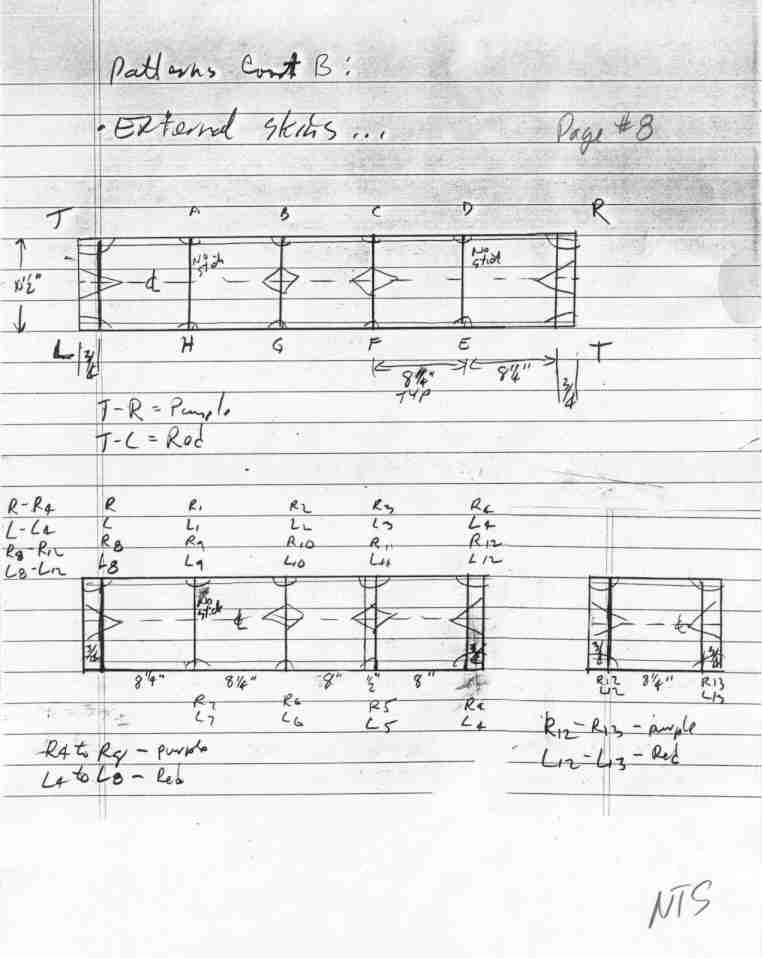 Patterns Cont B:
• External Skins ... Page #8
T A B C D R
No stick No stick
℄
L H G F E T
3/4 8 1/4" TYP 8 1/4" 3/4
T-R = Purple
T-L = Red
R-R4 R R1 R2 R3 R4
L-L4 L L1 L2 L3 L4
R8-R12 R8 R9 R10 R11 R12
L8-L12 L8 L9 L10 L11 L12
No stick
℄ ℄
3/4 3/4 3/4 3/4
8 1/4" 8 1/4" 8" 1/2" 8" R12 8 1/4" R13
L12 L13
R7 R6 R5 R4
L7 L6 L5 L4
R12-R13 - purple
L12-L13 - Red
R4 to R8 - purple
L4 to L8 - Red
NTS